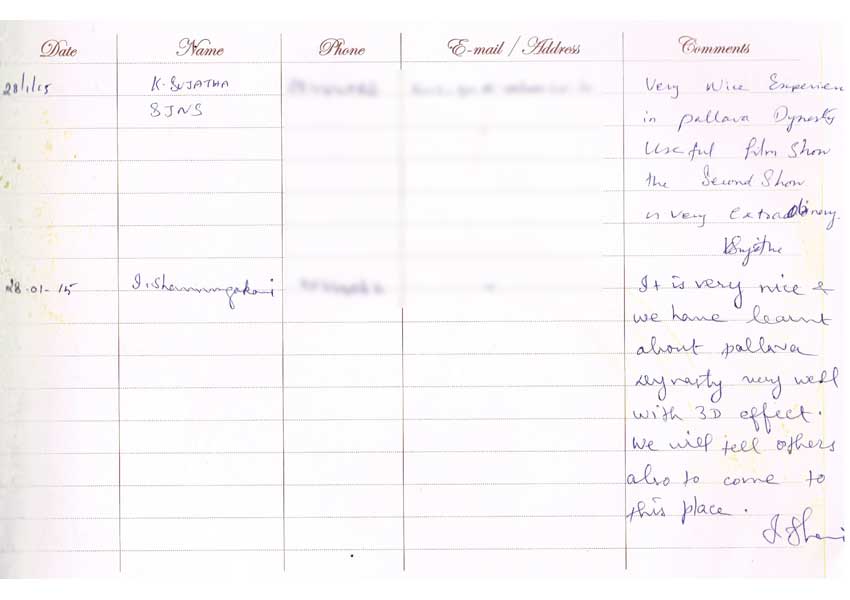 Date Name Phone E-mail / Address Comments
28/1/15 K. SUJATHA Very Nice Experien
SJNS in pallava Dynasty
Useful film Show
the Second Show
is very extraordinary.
28-01-15 It is very nice &
we have learnt
about pallava
dynasty very well
with 3D effect.
We will tell others
also to come to
this place.